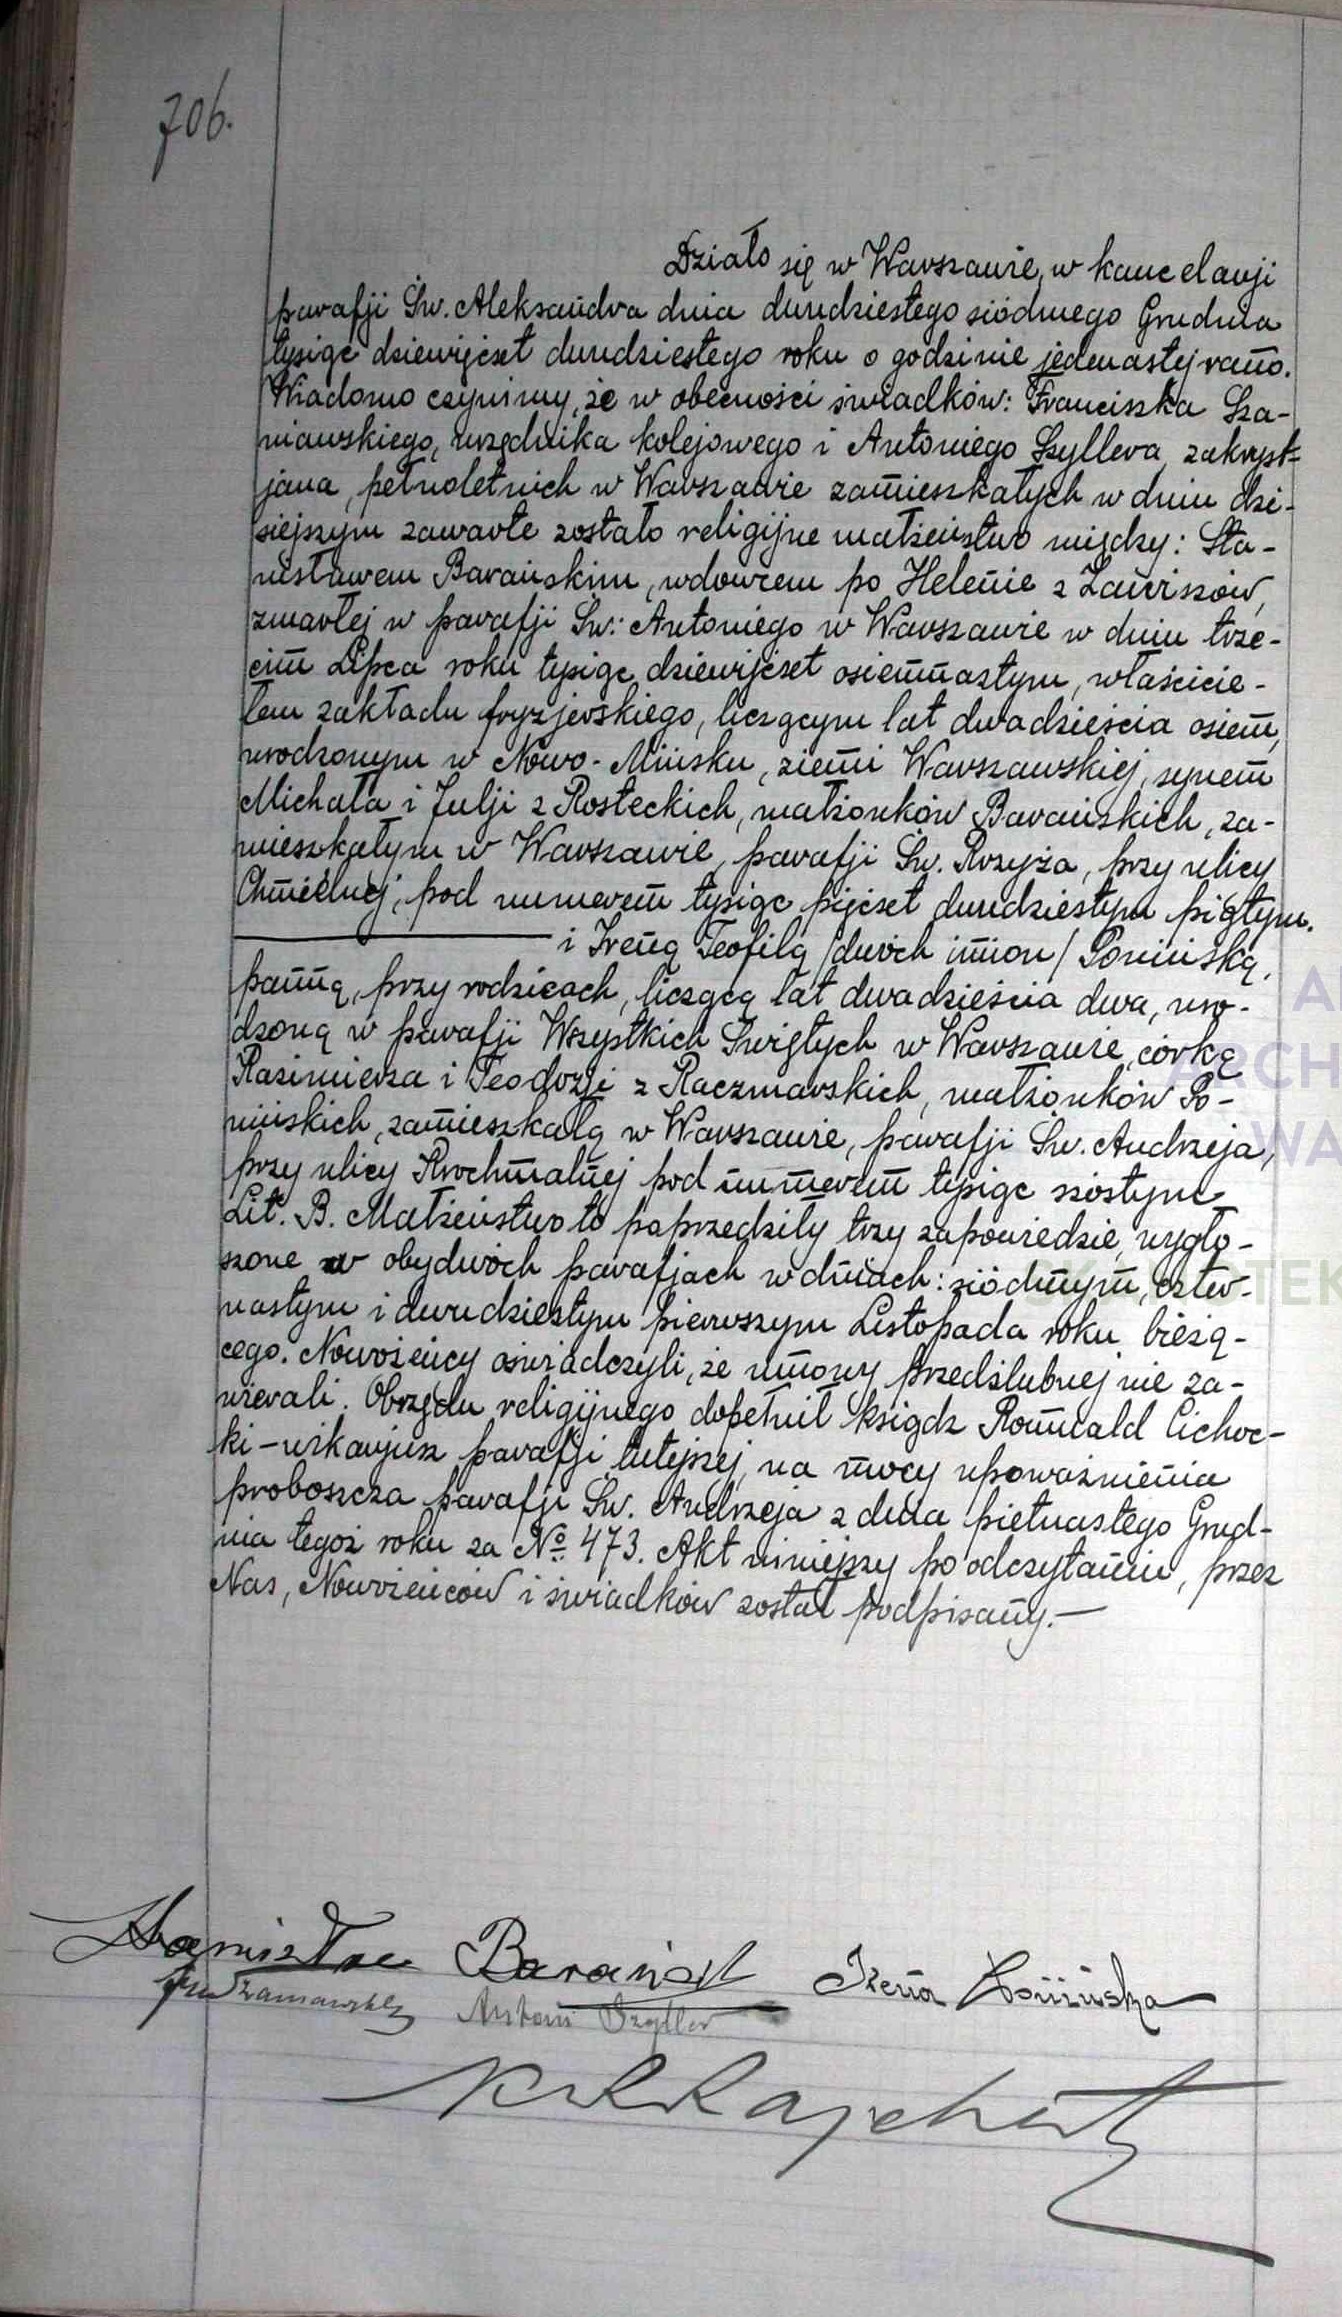 706.
Działo się w Warszawie, w kancelarji
parafji Św. Aleksandra dnia dwudziestego siódmego Grudnia
tysiąc dziewięćset dwudziestego roku o godzinie jedenastej rano.
Wiadomo czynimy, że w obecności świadków: Franciszka Sza-
niawskiego, urzędnika kolejowego i Antoniego Szyllera, zakryst-
jana, pełnoletnich w Warszawie zamieszkałych w dniu dzi-
siejszym zawarte zostało religijne małżeństwo między: Sta-
nisławem Barańskim, wdowcem po Helenie z Zawiszów,
zmarłej w parafji Św: Antoniego w Warszawie w dniu trze-
cim Lipca roku tysiąc dziewięćset osiemnastym, właścicie-
lem zakładu fryzjerskiego, liczącym lat dwadzieścia osiem,
urodzonym w Nowo-Mińsku, ziemi Warszawskiej, synem
Michała i Julji z Rosteckich, małżonków Barańskich, za-
mieszkałym w Warszawie, parafji Św. Krzyża, przy ulicy
Chmielnej, pod numerem tysiąc pięćset dwudziestym piątym.
i Ireną Teofilą /dwóch imion/ Ponińską,
panną, przy rodzicach, liczącą lat dwadzieścia dwa, uro-
dzoną w parafji Wszystkich Świętych w Warszawie, córką
Kazimierza i Teodozji z Kaczmarskich, małżonków Po-
nińskich, zamieszkałą w Warszawie, parafji Św. Andrzeja,
przy ulicy Krochmalnej pod numerem tysiąc szóstym
Lit. B. Małżeństwo to poprzedziły trzy zapowiedzie, wygło-
szone w obydwóch parafjach w dniach: siódmym, czter-
nastym i dwudziestym pierwszym Listopada roku bieżą-
cego. Nowożeńcy oświadczyli, że umowy przedślubnej nie za-
wierali. Obrzędu religijnego dopełnił ksiądz Romuald Cichoc-
ki – wikarjusz parafji tutejszej, na mocy upoważnienia
proboszcza parafji Św. Andrzeja z dnia piętnastego Grud-
nia tegoż roku za № 473. Akt niniejszy po odczytaniu, przez
Nas, Nowożeńców i świadków został podpisany.—
Stanisław Barański Irena Ponińska
Szaniawski Antoni Szyller